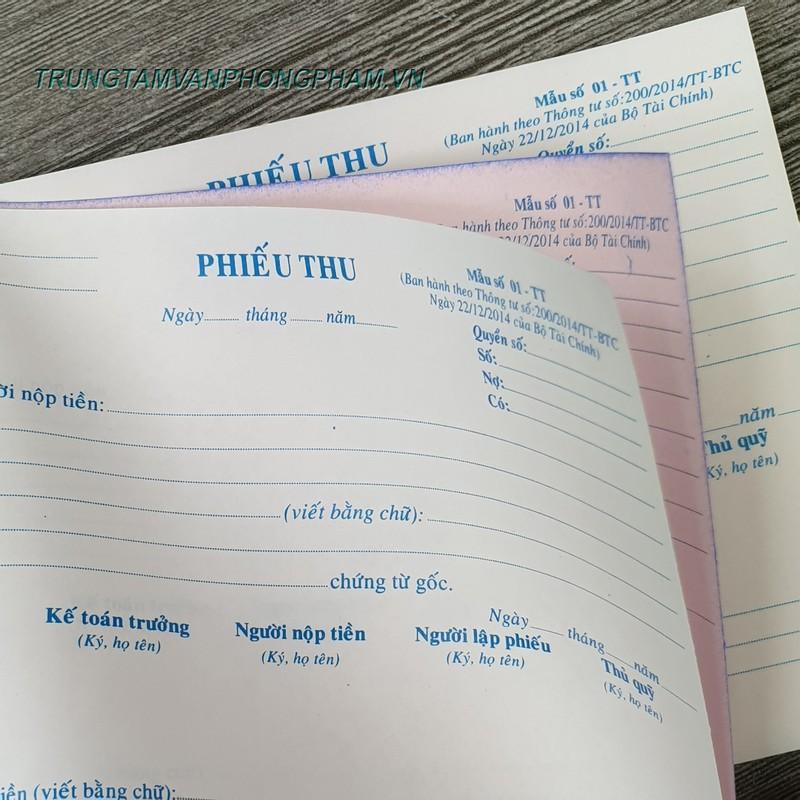 TRUNGTAMVANPHONGPHAM.VN
Mẫu số 01 - TT
(Ban hành theo Thông tư số:200/2014/TT-BTC
Ngày 22/12/2014 của Bộ Tài Chính)
PHIẾU THU
Quyển số:
năm
Thủ quỹ
Ký, họ tên)
Mẫu số 01 - TT
hành theo Thông tư số:200/2014/TT-BTC
/12/2014 của Bộ Tài Chính)
PHIẾU THU
Mẫu số 01 - TT
(Ban hành theo Thông tư số:200/2014/TT-BTC
Ngày 22/12/2014 của Bộ Tài Chính)
Ngày tháng năm
Quyển số:
Số:
Nợ:
Có:
nộp tiền:
(viết bằng chữ):
chứng từ gốc.
Ngày tháng năm
Kế toán trưởng Người nộp tiền Người lập phiếu Thủ quỹ
(Ký, họ tên) (Ký, họ tên) (Ký, họ tên) (Ký, họ tên)
(viết bằng chữ):